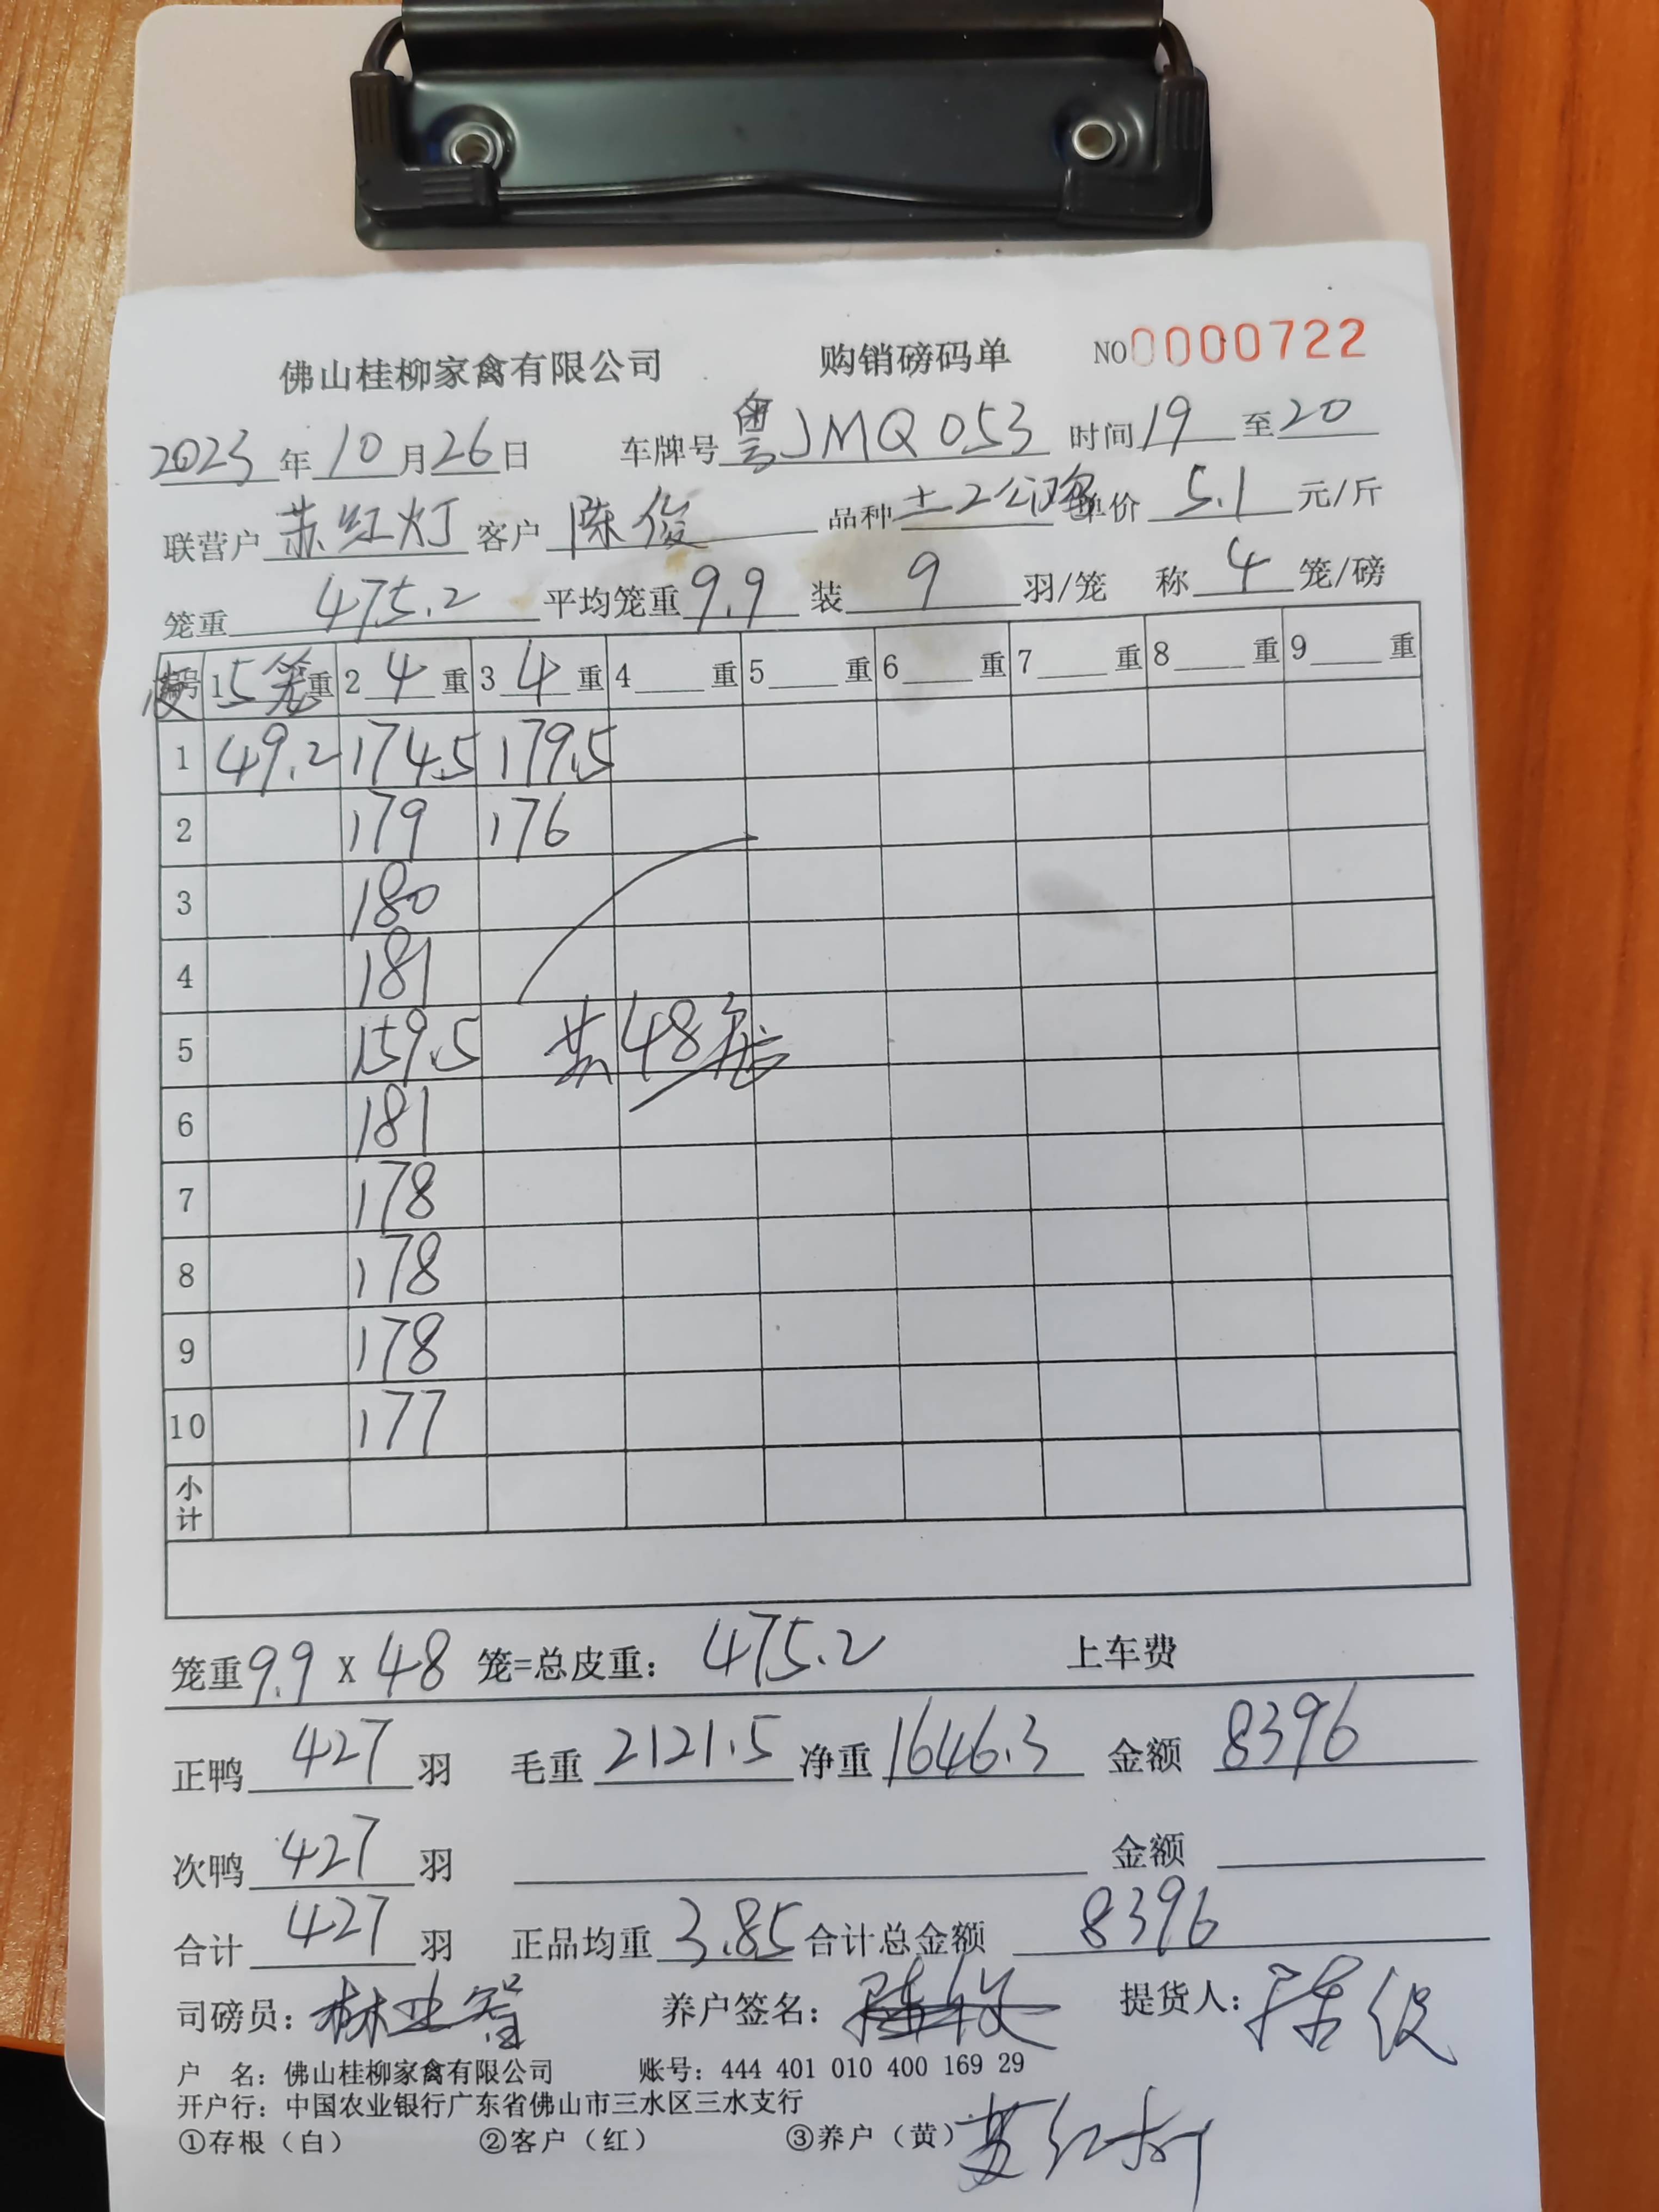 佛山桂柳家禽有限公司 购销磅码单 NO0000722
2023年10月26日 车牌号粤JMQ053 时间19至20
联营户苏红灯 客户陈俊 品种土2公鸡 单价5.1元/斤
笼重475.2 平均笼重9.9 装9羽/笼 称4笼/磅
码 1 5笼重 2 4重 3 4重 4 重 5 重 6 重 7 重 8 重 9 重
1 49.2 174.5 179.5
2 179 176
3 180
4 181
5 159.5 共48笼
6 181
7 178
8 178
9 178
10 177
小计
笼重9.9X48笼=总皮重：475.2 上车费
正鸭427羽 毛重2121.5 净重1646.3 金额8396
次鸭427羽 金额
合计427羽 正品均重3.85 合计总金额8396
司磅员：林业智 养户签名： 提货人：陈俊
户 名：佛山桂柳家禽有限公司 账号：444 401 010 400 169 29
开户行：中国农业银行广东省佛山市三水区三水支行
①存根（白） ②客户（红） ③养户（黄） 苏红灯